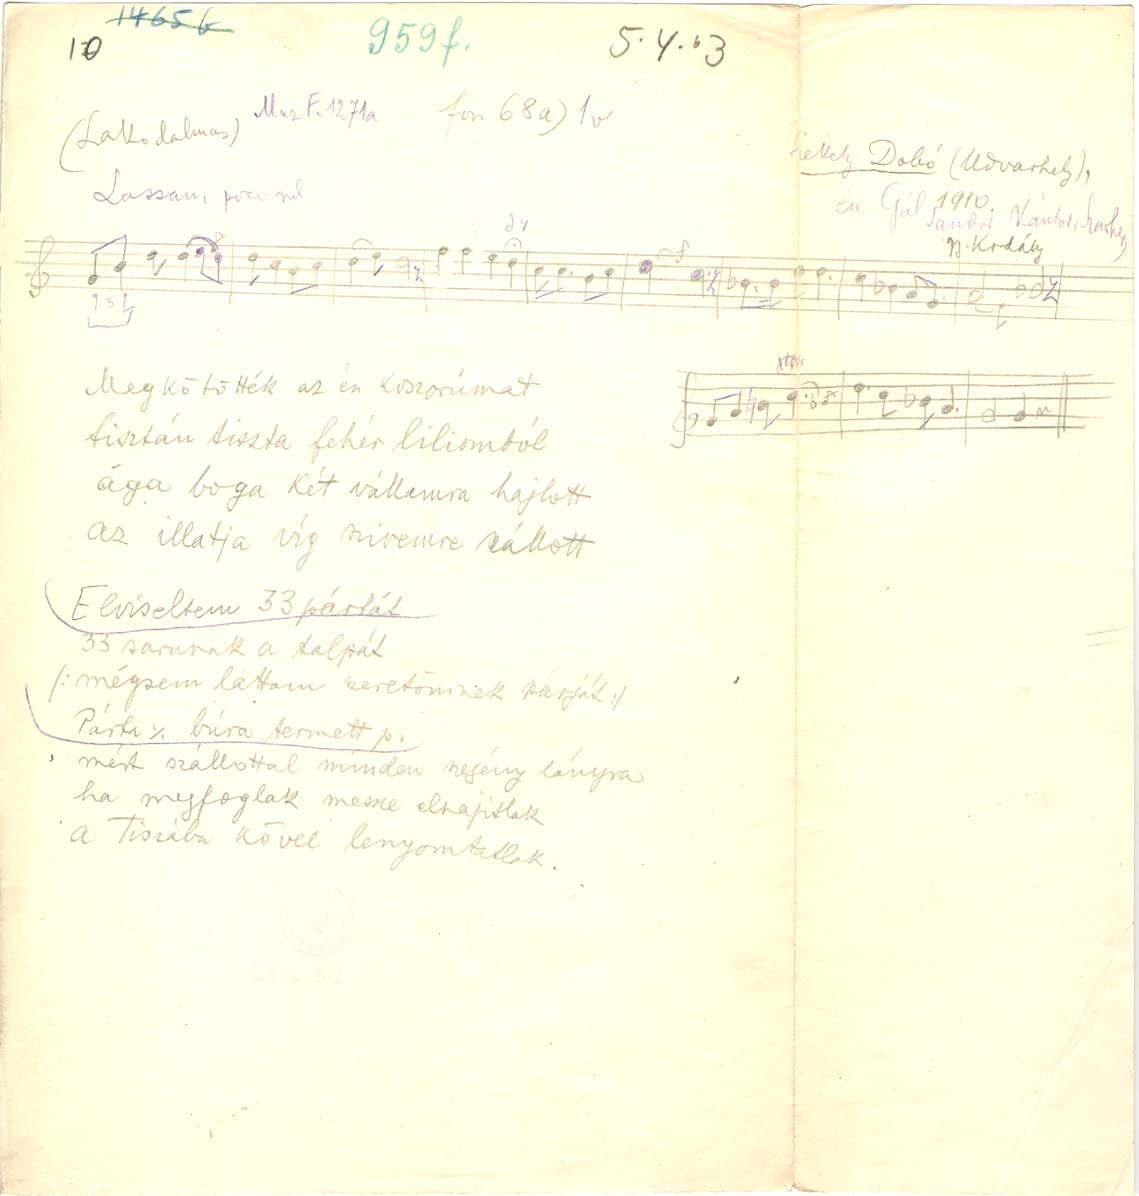 14656
10
959f.
5.4.b3
(Lakodalmas)
Muz F. 1271a
fon 68a) 1v
Dobó (Udvarhely),
én. Gál Sándor
1910.
Kodály
Lassan, poco
3
Megkötötték az én koszorúmat
tisztán tiszta fehér liliomból
ága boga két vállamra hajlott
az illatja víg szivemre szállott
Elviseltem 33 pártát
33 sarunak a talpát
/: mégsem láttam szeretőmnek párját :/
Párta %. búra termett p.
mért szállottal minden szegény lányra
ha megfoglak messze elhajitlak
a Tiszába kővel lenyomtatlak.